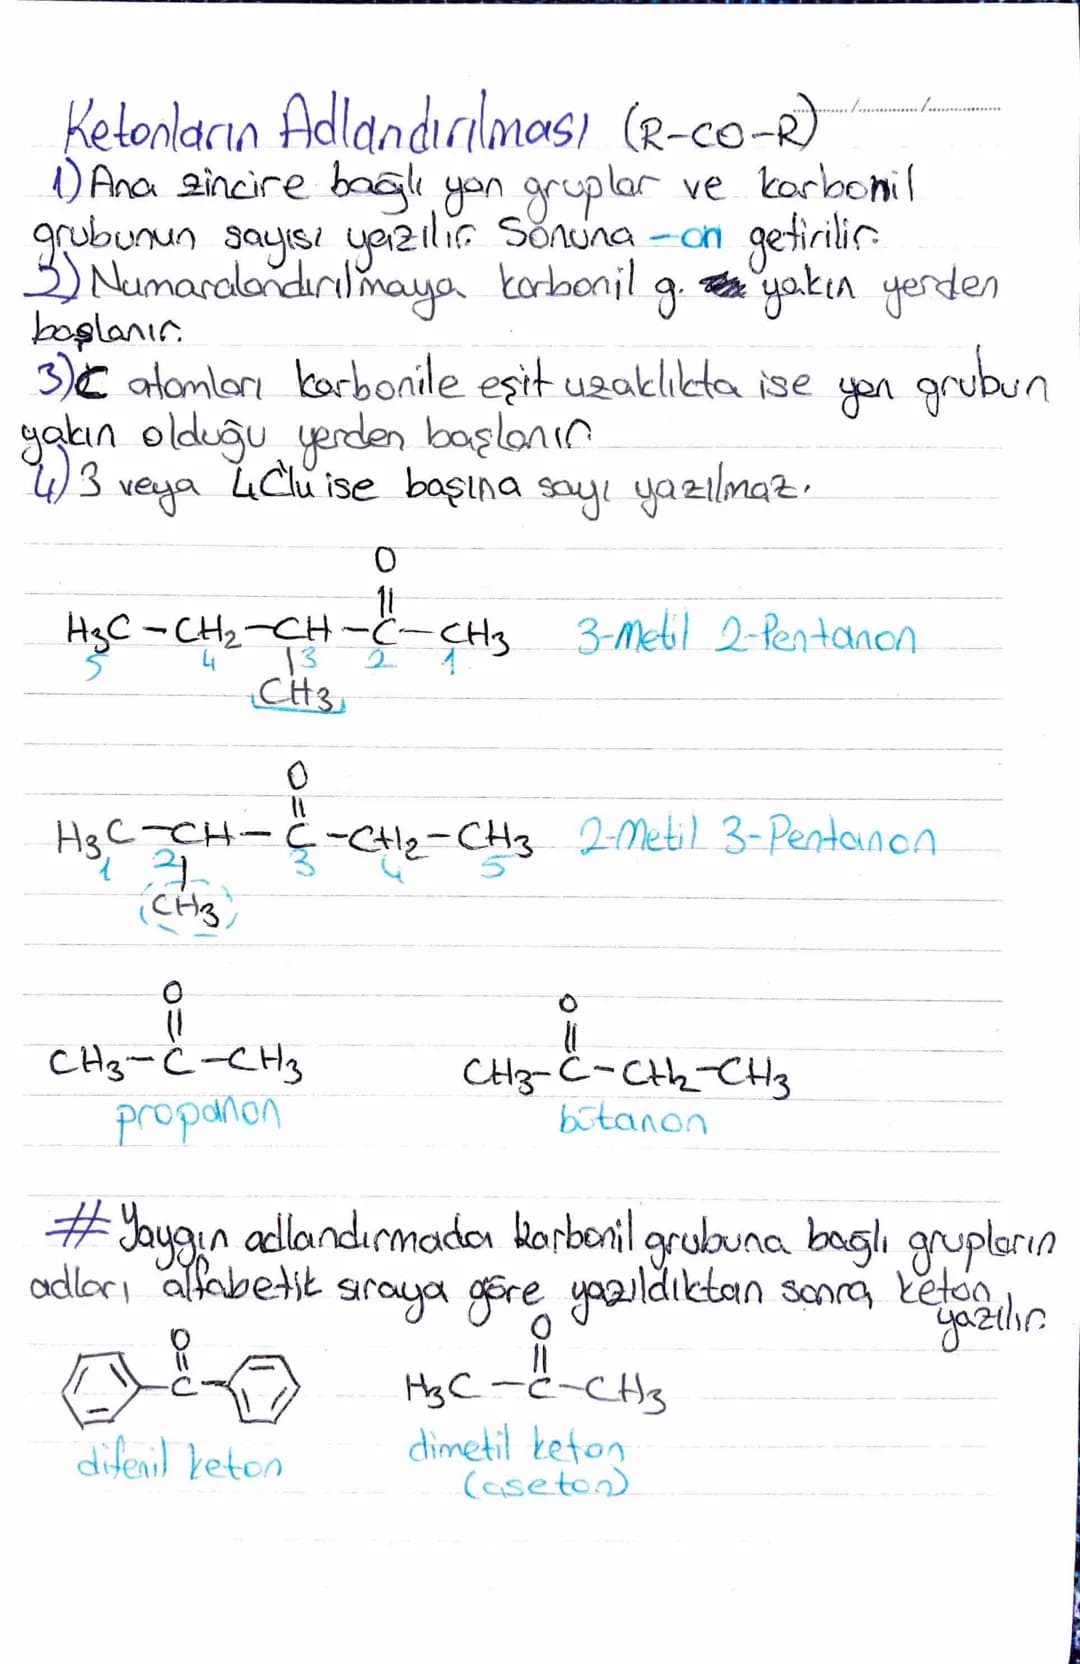 Ketonların Adlandırılması (R-CO-R)
1) Ana zincire bağlı yan gruplar ve karbonil
grubunun sayısı yazılır. Sonuna -on getirilir.
2) Numaralandırılmaya karbonil g. yakın yerden
başlanır.
3) C atomları karbonile eşit uzaklıkta ise yan grubun
yakın olduğu yerden başlanır
4) 3 veya 4C'lu ise başına sayı yazılmaz.
O
H₃C-CH₂-CH-C-CH₃ 3-Metil 2-Pentanon
5 4 3 2 1
CH₃
O
H₃C-CH-C-CH₂-CH₃ 2-Metil 3-Pentanon
1 2 3 4 5
CH₃
O O
CH₃-C-CH₃ CH₃-C-CH₂-CH₃
propanon bütanon
# Yaygın adlandırmada karbonil grubuna bağlı grupların
adları alfabetik sıraya göre yazıldıktan sonra keton
yazılır.
O O
C H₃C-C-CH₃
difenil keton dimetil keton
(aseton)